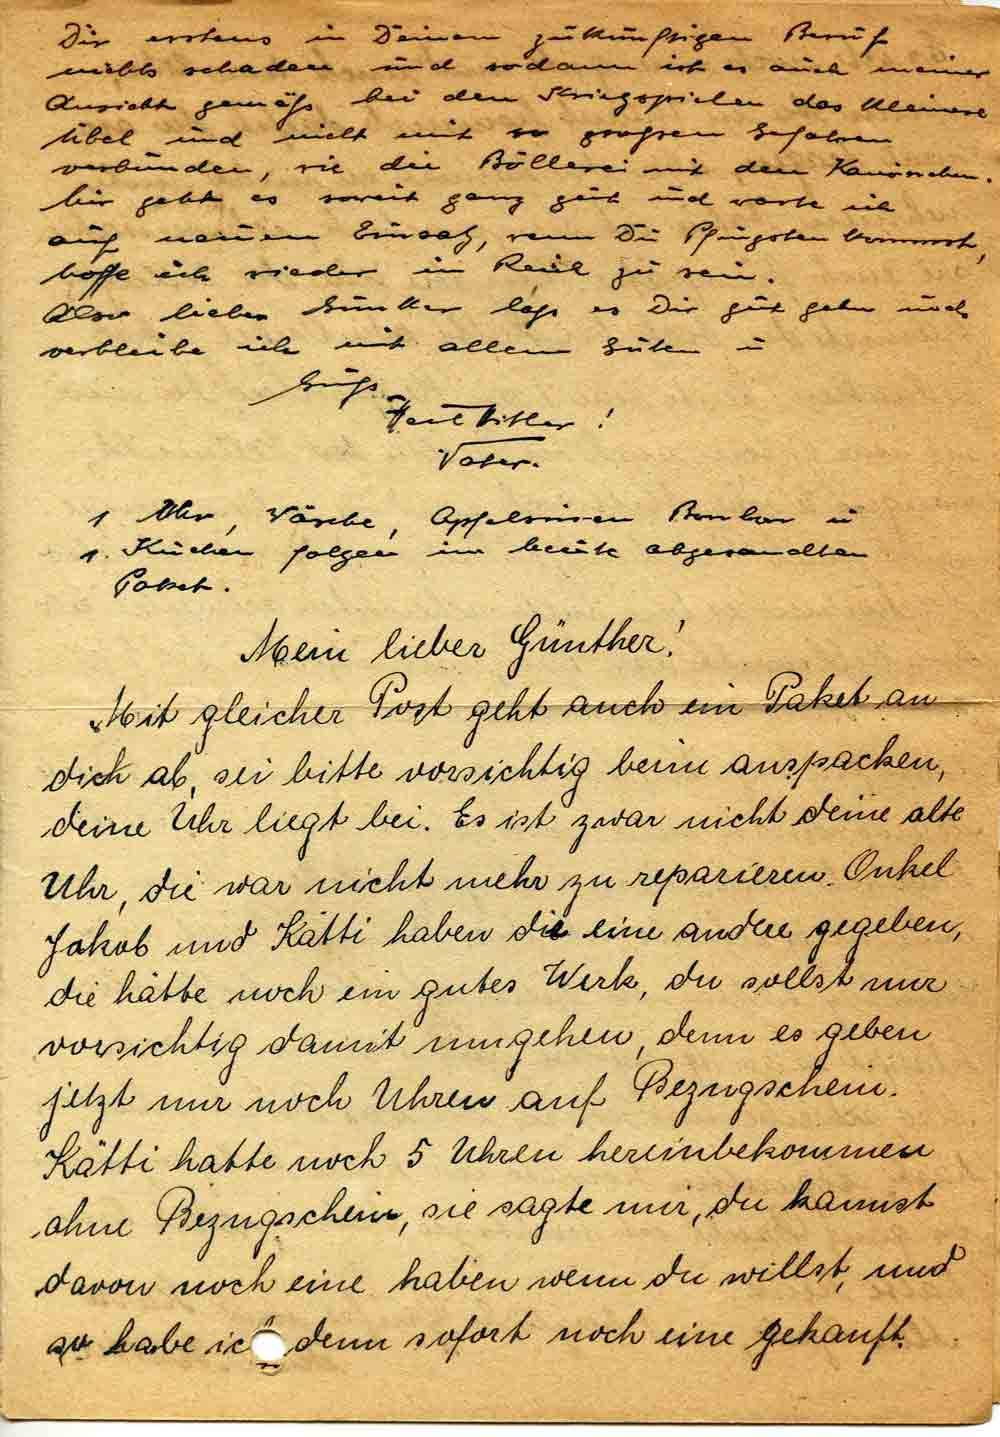 Dir erstens in Deinem zukünftigen Beruf
nichts schaden und sodann ist es auch meiner
Ansicht gemäß bei den Kriegsspielen das kleinere
Übel und nicht mit so großen Gefahren
verbunden, wie die Böllerei mit den Kanönchen.
Mir geht es soweit ganz gut und warte ich
auf neuen Einsatz, wenn Du Pfingsten kommst,
hoffe ich wieder in Reil zu sein.
Also lieber Günther laß es Dir gut gehn und
verbleibe ich mit allem Guten u
Gruß
Heil Hitler!
Vater.
1 Uhr, Wäsche, Apfelsinen Bonbon u
1. Kuchen folgen im heute abgesandten
Paket.
Mein lieber Günther!
Mit gleicher Post geht auch ein Paket an
dich ab, sei bitte vorsichtig beim auspacken,
deine Uhr liegt bei. Es ist zwar nicht deine alte
Uhr, die war nicht mehr zu reparieren. Onkel
Jakob und Kätti haben die eine andere gegeben,
die hätte noch ein gutes Werk, du sollst nur
vorsichtig damit umgehen, denn es geben
jetzt nur noch Uhren auf Bezugschein.
Kätti hatte noch 5 Uhren hereinbekommen
ohne Bezugschein, sie sagte mir, du kannst
davon noch eine haben wenn du willst, und
so habe ich denn sofort noch eine gekauft.